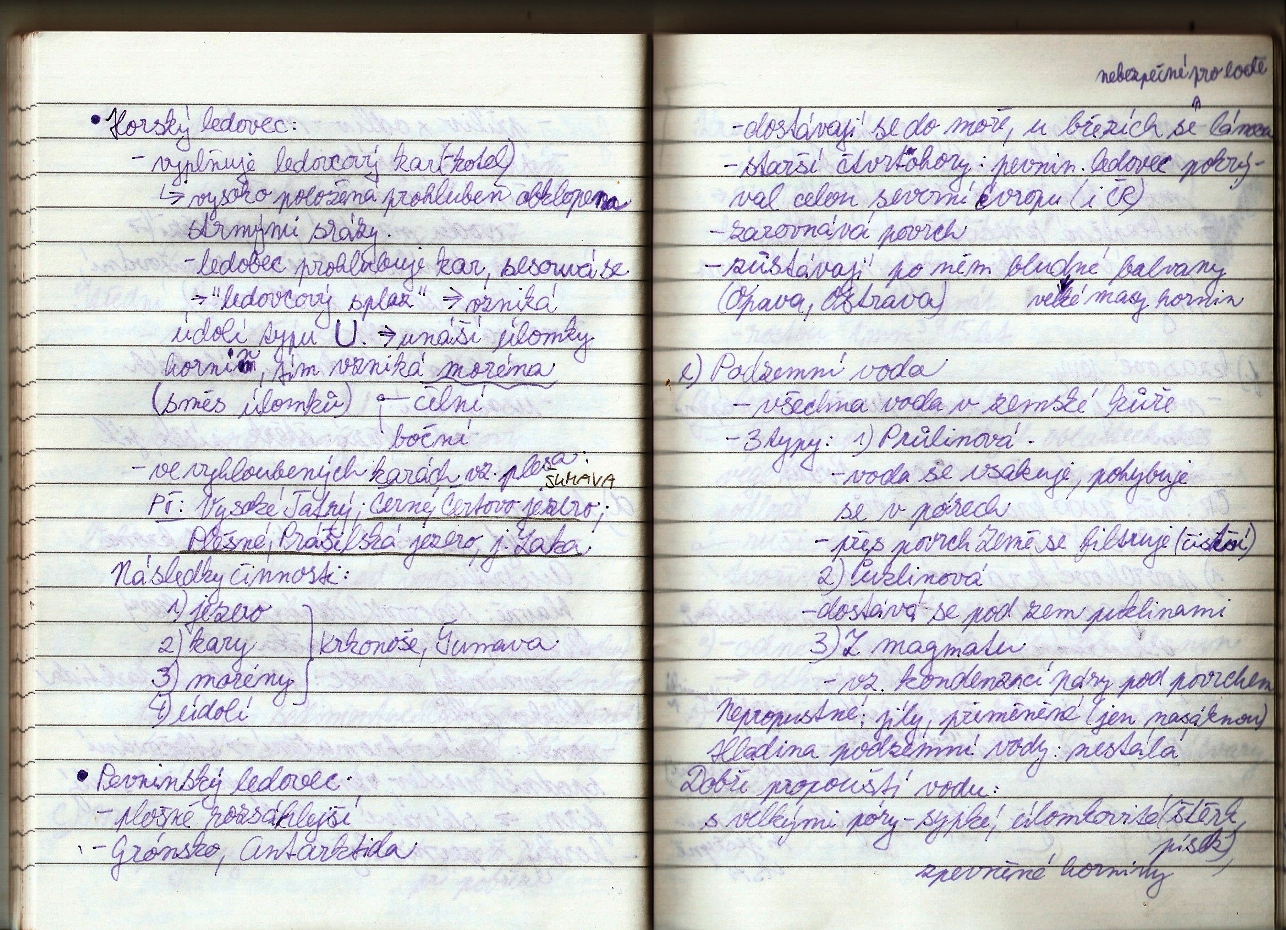 • Horský ledovec:
- vyplňuje ledovcový kar (-kotel)
↳ vysoko položená prohlubeň obklopena
strmými srázy.
- ledobec prohlubuje kar, sesouvá se
→ "ledovcový splaz" → vzniká
údolí typu U. → unáší úlomky
hornin, tím vzniká moréna
(směs úlomků) čelní
boční
- ve vyhloubených karách vz. plesa:
ŠUMAVA
Př: Vysoké Tatry; Černé, Čertovo jezero;
Plešné, Prášilské jezero, j. Laka
Následky činnosti:
1) jezero
2) kary
Krkonoše, Šumava
3) morény
4) údolí
• Pevninský ledovec:
- plošně rozsáhlejší
- Grónsko, Antarktida
nebezpečné pro lodě
- dostávají se do moře, u březích se lámou
- starší čtvrtohory: pevnin. ledovec pokrý-
val celou severní Evropu (i ČR)
- zarovnává povrch
- zůstávají po něm bludné balvany
(Opava, Ostrava) velké masy hornin
e) Podzemní voda
- všechna voda v zemské kůře
- 3 typy: 1) Průlinová.
- voda se vsakuje, pohybuje
se v pórech
- přes povrch Země se filtruje (čistší)
2) Puklinová
- dostává se pod zem puklinami
3) Z magmatu
- vz. kondenzací páry pod povrchem
Nepropustné: jíly, přiměřeně (jen nasáknou)
Hladina podzemní vody: nestálá
Dobře propouští vodu:
s velkými póry - sypké, úlomkovité (štěrk,
písek)
zpevněné horniny